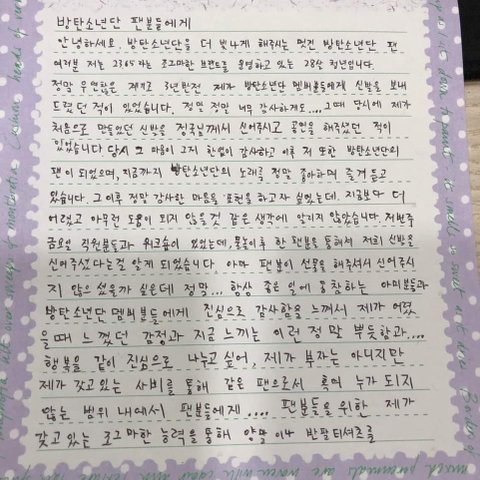 방탄소년단 팬분들에게
안녕하세요. 방탄소년단을 더 빛나게 해주시는 멋진 방탄소년단 팬
여러분 저는 2365라는 조그마한 브랜드를 운영하고 있는 28살 청년입니다.
정말 우연찮은 계기로 3년전 제가 방탄소년단 멤버분들에게 신발을 보내
드렸던 적이 있었습니다. 정말 정말 너무 감사하게도.... 그때 당시에 제가
처음으로 만들었던 신발을 정국님께서 신어주시고 공연을 해주셨던 적이
있었습니다 당시 그 마음이 그저 한없이 감사하고 이후 저 또한 방탄소년단의
팬이 되었으며, 지금까지 방탄소년단의 노래를 정말 좋아하며 즐겨 듣고
있습니다. 그 이후 정말 감사한 마음을 표현을 하고자 싶었는데, 지금보다 더
어렸고 아무런 도움이 되지 않을것 같은 생각에 알리지 않았습니다. 저번주
금요일 직원분들과 워크숍이 있었는데, 물놀이 후 한 팬분을 통해서 저희 신발을
신어주셨다는걸 알게 되었습니다. 아마 팬분이 선물을 해주셔서 신어주시
지 않으셨을까 싶은데 정말... 항상 좋은 일에 동참하는 아미분들과
방탄소년단 멤버분들에게 진심으로 감사함을 느껴서 제가 어렸
을때 느꼈던 감정과 지금 느끼는 이런 정말 뿌듯함과....
행복을 같이 진심으로 나누고 싶어, 제가 부자는 아니지만
제가 갖고있는 사비를 통해 같은 팬으로서 혹여 누가 되지
않는 범위 내에서 팬분들에게.... 팬분들을 위한 제가
갖고 있는 조그마한 능력을 통해 양말이나 반팔티셔츠를